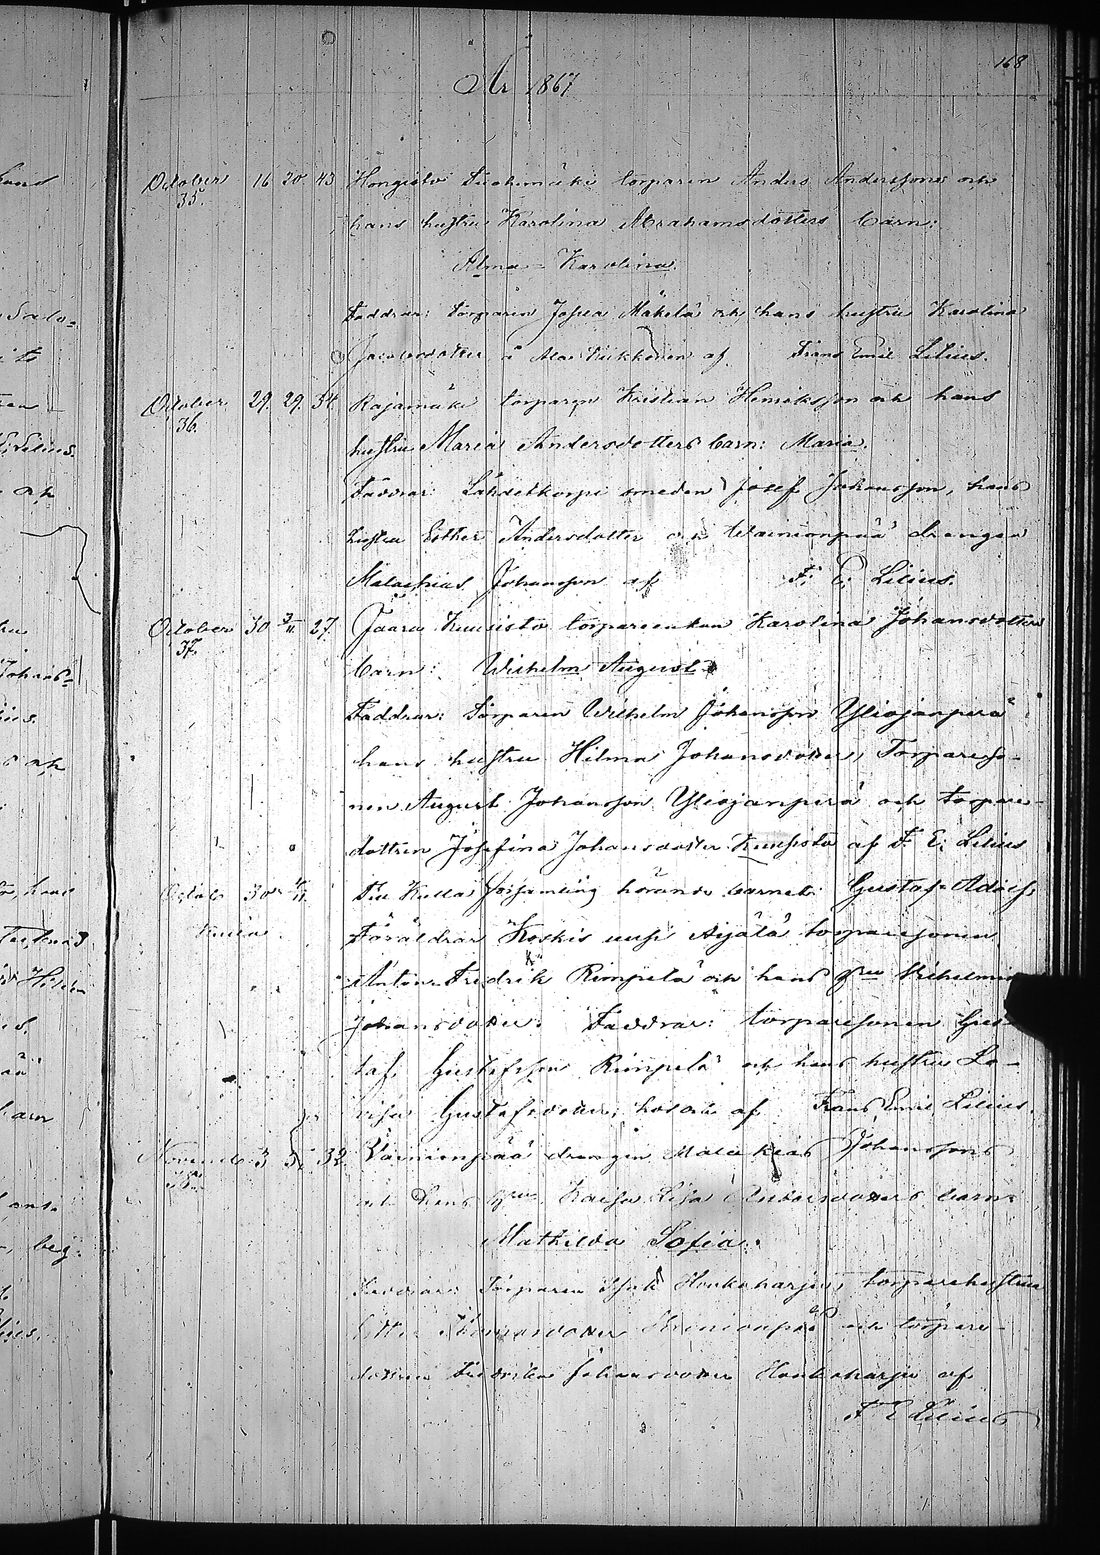 168
År 1867
October 16 20 43 Hongisto Tuohimäki torparen Anders Anderssons och
35.
hans hustru Karolina Abrahamsdotters barn:
Alma Karolina.
Faddrar: torparen Josua Mäkelä och hans hustru Karolina
Jacobsdotter å Ala af Frans Emil Lilius.
October 29. 29. 34. Rajamäki torparen Kristian Henriksson och hans
36.
hustru Maria Andersdotters barn: Maria.
Faddrar: Lähdetkorpi smeden Josef Johansson, hans
hustru Esther Andersdotter och Wainionpää drengen
Malachias Johansson af F. E. Lilius.
October 30 3/11 27. Jaara Kuusisto torpareenkan Karolina Johansdotters
37.
barn: Wilhelm August
Faddrar: Torparen Wilhelm Johansson Yliojanperä
hans hustru Hilma Johansdotter, Torpareso-
nen August Johansson Yliojanperä och torpare-
dottren Josefina Johansdotter Kuusisto af F. E. Lilius
Octob 30 /11. Till Kulla församling hörande barnet: Gustaf Adolf.
Kulla
Föräldrar Koskis Äijälä torparesonen
Anton Fredrik Rimpelä och hans hru Wilhelmina
Johansdotter. Faddrar: torparesonen Gus-
taf Gustafsson Rimpelä och hans hustru Lo-
visa Gustafsdotter, af Frans Emil Lilius.
Novemb 3 5. 32 Vainionpää drengen Malakias Johanssons
38.
och dens hru Kaisa Lisa Andersdotters barn:
Mathilda Sofia.
Faddrar: Torparen Isak Honkaharju, torparehustrun
Ester Wainionpää och torpare-
dottren Fredrika Johansdotter Honkaharju af
F E Lilius